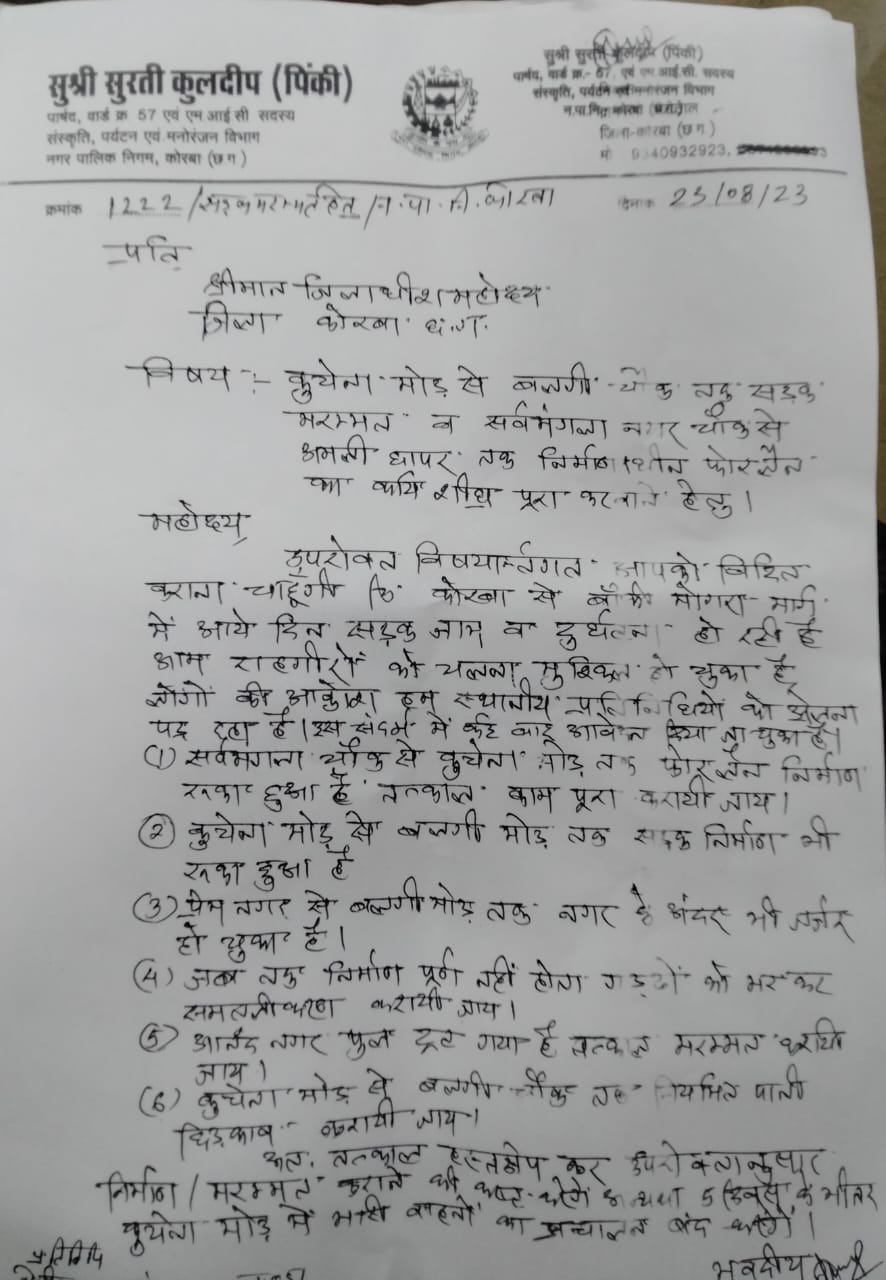 सुश्री सुरती कुलदीप (पिंकी)
पार्षद, वार्ड क्र 57 एवं एम आई सी सदस्य
संस्कृति, पर्यटन एवं मनोरंजन विभाग
नगर पालिक निगम, कोरबा (छ ग )
सुश्री सुरती कुलदीप (पिंकी)
पार्षद, वार्ड क्र.- 57, एवं एम.आई.सी. सदस्य
संस्कृति, पर्यटन एवं मनोरंजन विभाग
न.पा.नि. कोरबा
जिला-कोरबा (छ ग )
मो 9340932923,
क्रमांक 1222/सड़क मरम्मत हेतु/न. पा. नि. कोरबा
दिनांक 25/08/23
प्रति
श्रीमान जिलाधीश महोदय
जिला कोरबा छ.ग.
विषय :- कुचेना मोड़ से बलगी चौक तक सड़क
मरम्मत व सर्वमंगला नगर चौक से
आमली छापर तक निर्माणाधीन फोरलैन
का कार्य शीघ्र पूरा करवाने हेतु।
महोदय,
उपरोक्त विषयार्न्तगत आपको विदित
कराना चाहूंगी कि कोरबा से बाँकी मोंगरा मार्ग
में आये दिन सड़क जाम व दुर्घटना हो रही है
आम राहगीरों को चलना मुश्किल हो चुका है,
लोगों की आक्रोश हम स्थानीय प्रतिनिधियों को झेलना
पड़ रहा है। इस संदर्भ में कई बार आवेदन दिया जा चुका है।
(1) सर्वमंगला चौक से कुचेना मोड़ तक फोरलैन निर्माण
रूका हुआ है तत्काल काम पूरा करायी जाय।
(2) कुचेना मोड़ से बलगी मोड़ तक सड़क निर्माण भी
रूका हुआ है
(3) प्रेम नगर से बलगी मोड़ तक नगर के अंदर भी जर्जर
हो चुका है।
(4) जब तक निर्माण पूर्ण नहीं होता गड्ढों को भर कर
समतलीकरण करायी जाय।
(5) आनंद नगर पुल टूट गया है तत्काल मरम्मत करायी
जाय।
(6) कुचेना मोड़ से बलगी चौक तक नियमित पानी
छिड़काव करायी जाय।
अतः तत्काल हस्तक्षेप कर उपरोक्तानुसार
निर्माण/मरम्मत कराने की कष्ट करेंगे अन्यथा 5 दिवस के भीतर
कुचेना मोड़ में भारी वाहनों का संचालन बंद करेंगे।
प्रतिलिपि
भवदीय